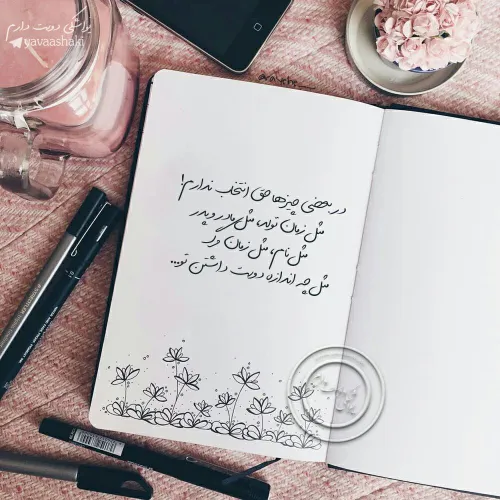 یواشکی دوست دارم
yavaashaki
در بعضی چیزها حق انتخاب ندارم!
مثل زمان تولد، مثل مادر و پدر
مثل نام، مثل زمان
مثل چه اندازه دوست داشتن تو...